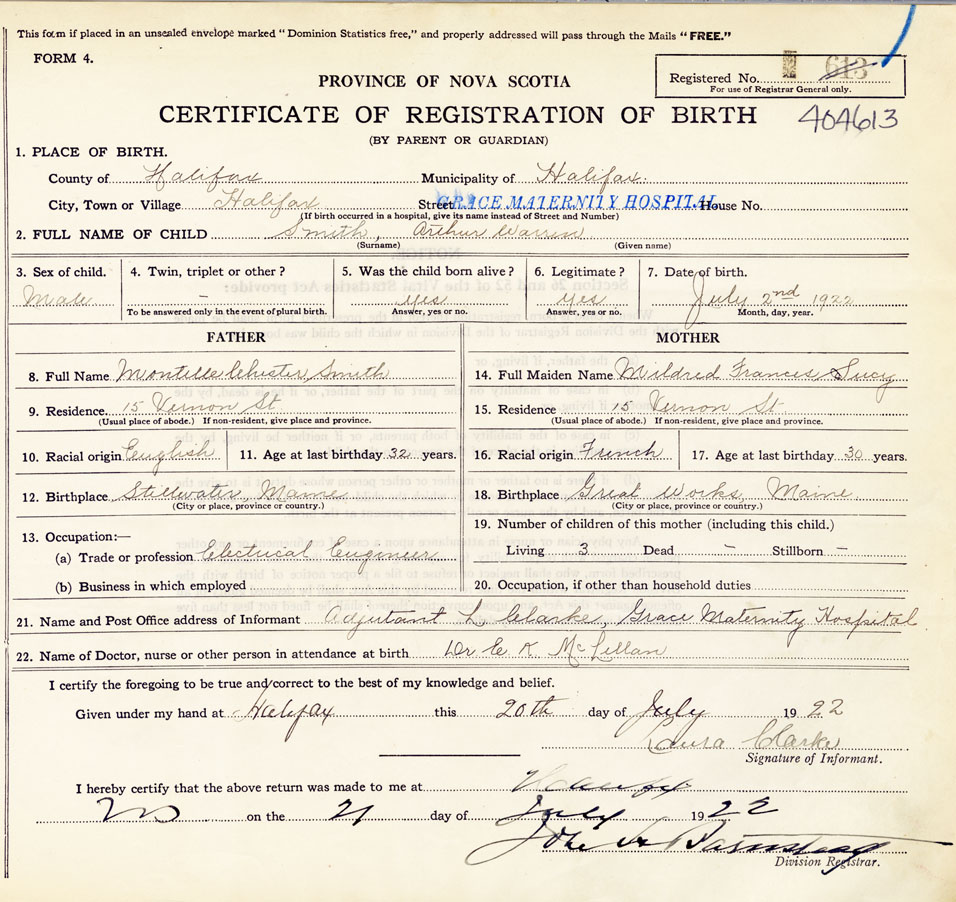 This form if placed in an unsealed envelope marked "Dominion Statistics free," and properly addressed will pass through the Mails "FREE."
FORM 4.
Registered No. 613
For use of Registrar General only.
PROVINCE OF NOVA SCOTIA
CERTIFICATE OF REGISTRATION OF BIRTH 404613
(BY PARENT OR GUARDIAN)
1. PLACE OF BIRTH.
County of Halifax Municipality of Halifax.
City, Town or Village Halifax Street GRACE MATERNITY HOSPITAL House No.
(If birth occurred in a hospital, give its name instead of Street and Number)
2. FULL NAME OF CHILD Smith, Arthur Warren
(Surname) (Given name)
3. Sex of child. 4. Twin, triplet or other? 5. Was the child born alive? 6. Legitimate? 7. Date of birth.
Male — yes yes July 2nd 1922
To be answered only in the event of plural birth. Answer, yes or no. Answer, yes or no. Month, day, year.
FATHER MOTHER
8. Full Name Montelle Chester Smith 14. Full Maiden Name Mildred Frances Lucy
9. Residence. 15 Vernon St. 15. Residence 15 Vernon St
(Usual place of abode.) If non-resident, give place and province. (Usual place of abode.) If non-resident, give place and province.
10. Racial origin English 11. Age at last birthday 32 years. 16. Racial origin French 17. Age at last birthday 30 years.
12. Birthplace Stillwater, Maine 18. Birthplace Great Works, Maine.
(City or place, province or country.) (City or place, province or country.)
13. Occupation:— 19. Number of children of this mother (including this child.)
(a) Trade or profession Electrical Engineer Living 3 Dead — Stillborn —
(b) Business in which employed 20. Occupation, if other than household duties
21. Name and Post Office address of Informant Adjutant L. Clarke, Grace Maternity Hospital
22. Name of Doctor, nurse or other person in attendance at birth Dr E K McLellan
I certify the foregoing to be true and correct to the best of my knowledge and belief.
Given under my hand at Halifax this 20th day of July 1922
Laura Clarke
Signature of Informant.
I hereby certify that the above return was made to me at Halifax
NS on the 21 day of July 1922
John A
Division Registrar.